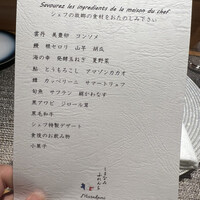 Savourez les ingredients de la maison du chef
シェフの故郷の食材をおたのしみ下さい
雲丹 美豊卵 コンソメ
鰻 根セロリ 山芋 胡瓜
海の幸 発酵玉ねぎ 夏野菜
鮎 とうもろこし アマゾンカカオ
鱧 カッペリーニ サマートリュフ
旬魚 サフラン 銀がわなす
黒アワビ ジロール茸
黒毛和牛
シェフ特製デザート
食後のお飲み物
小菓子